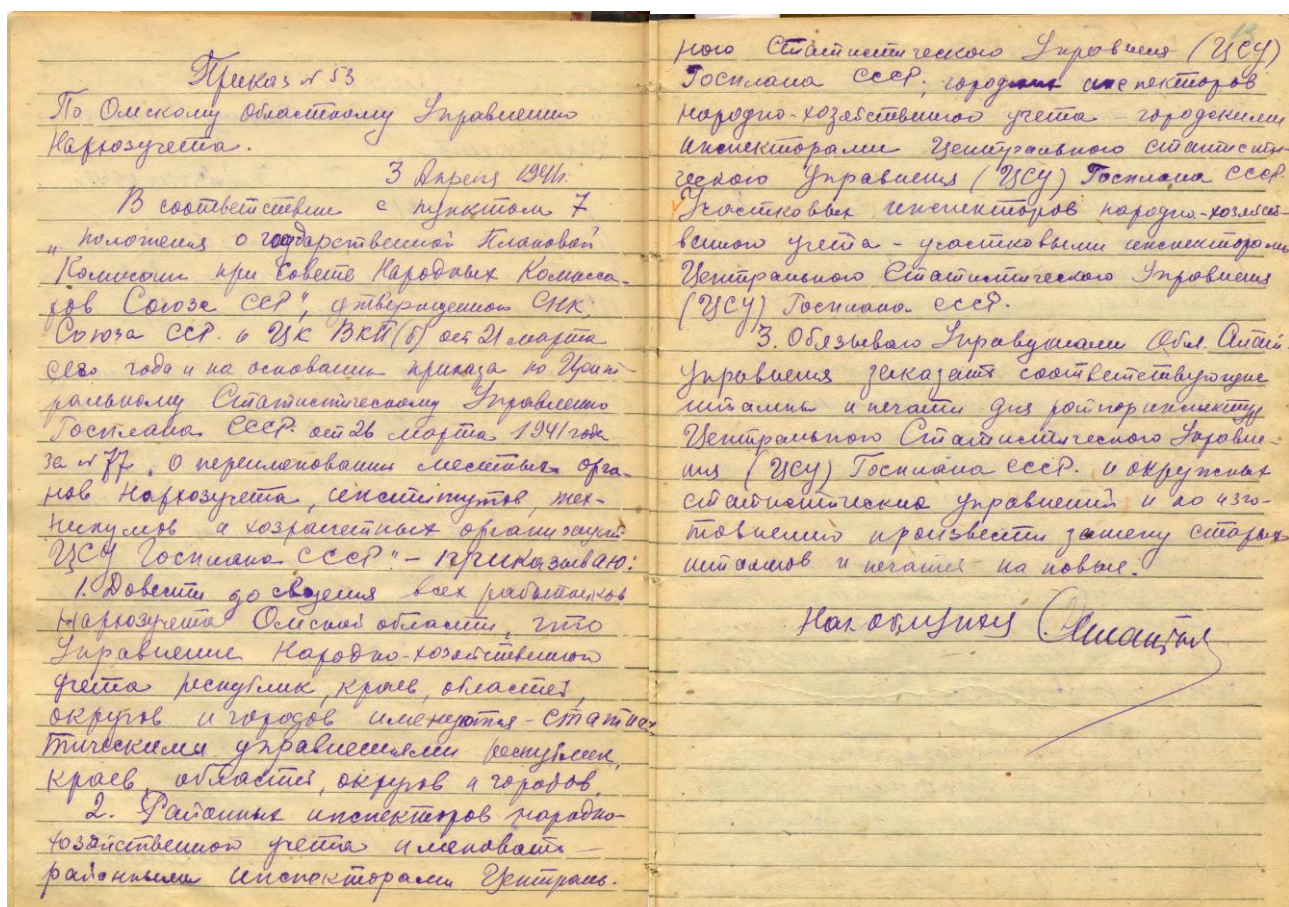 Приказ № 53
По Омскому Областному Управлению
Нархозучета.
3 Апреля 1941г.
В соответствие с пунктом 7
„положения о государственной Плановой
Комиссии при Совете Народных Комисса-
ров Союза ССР", утвержденном СНК
Союза ССР. и ЦК ВКП(б) от 21 марта
сего года и на основании приказа по Цент-
ральному Статистическому Управлению
Госплана СССР. от 26 марта 1941 года
за № 77 „О переименовании местных орга-
нов Нархозучета, институтов, тех-
никумов и хозрасчетных организаций
ЦСУ Госплана СССР" – приказываю:
1. Довести до сведения всех работников
Нархозучета Омской области, что
Управление Народно-хозяйственного
учета республик, краев, областей,
округов и городов именуются – статис-
тическими управлениями республик,
краев, областей, округов и городов.
2. Районных инспекторов народно-
хозяйственного учета именовать –
районными инспекторами Централь-
12
ного Статистического Управления (ЦСУ)
Госплана СССР; город инспекторов
народно-хозяйственного учета – городскими
инспекторами Центрального статисти-
ческого Управления (ЦСУ) Госплана СССР.
Участковых инспекторов народно-хозяйст-
венного учета – участковыми инспекторами
Центрального Статистического Управления
(ЦСУ) Госплана СССР.
3. Обязываю Управделами Обл. Стат.
Управления заказать соответствующие
штампы и печати для райгоринспектур
Центрального Статистического Управле-
ния (ЦСУ) Госплана СССР. и окружных
статистических управлений и по изго-
товлению произвести замену старых
штампов и печатей на новые.